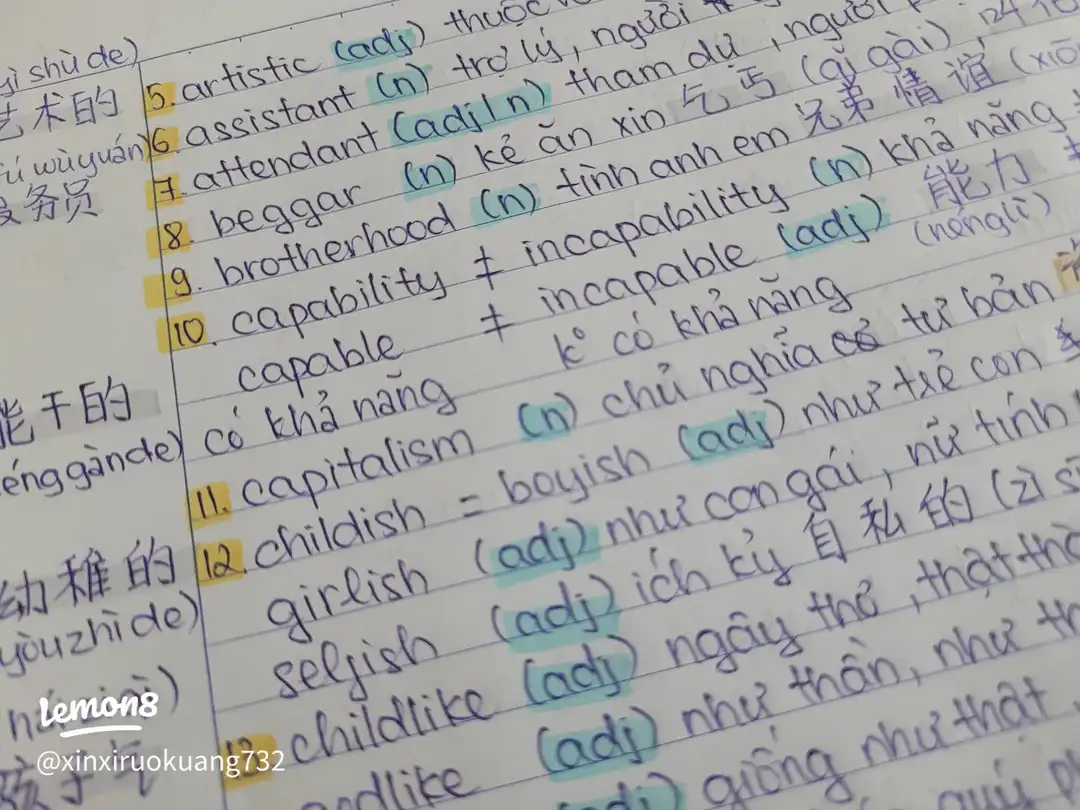 yì shù de)
艺术的
5. artistic (adj) thuộc
wùyuán)
务员
6. assistant (n) trợ lý, người
7. attendant (adj/n) tham dự, người
8. beggar (n) kẻ ăn xin 乞丐 (qǐ gài)
9. brotherhood (n) tình anh em 兄弟情谊 (xiō
10. capability ≠ incapability (n) khả năng
capable ≠ incapable (adj) 能力 (nénglì)
能干的
énggànde)
có khả năng k° có khả năng
11. capitalism (n) chủ nghĩa tư bản
幼稚的
yòuzhìde)
12. childish = boyish (adj) như trẻ con
girlish (adj) như con gái, nữ tính
selfish (adj) ích kỷ 自私的 (zì sī
13. childlike (adj) ngây thơ, thật thà
godlike (adj) như thần, như th
(adj) giống như thật
quý
孩子气
lemon8
@xinxiruokuang732